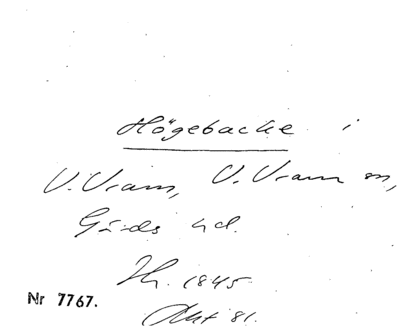 Högebacke i
V. Vram, V. Vram sn,
Gärds hd.
Th. 1845
Akt 81.
Nr 7767.